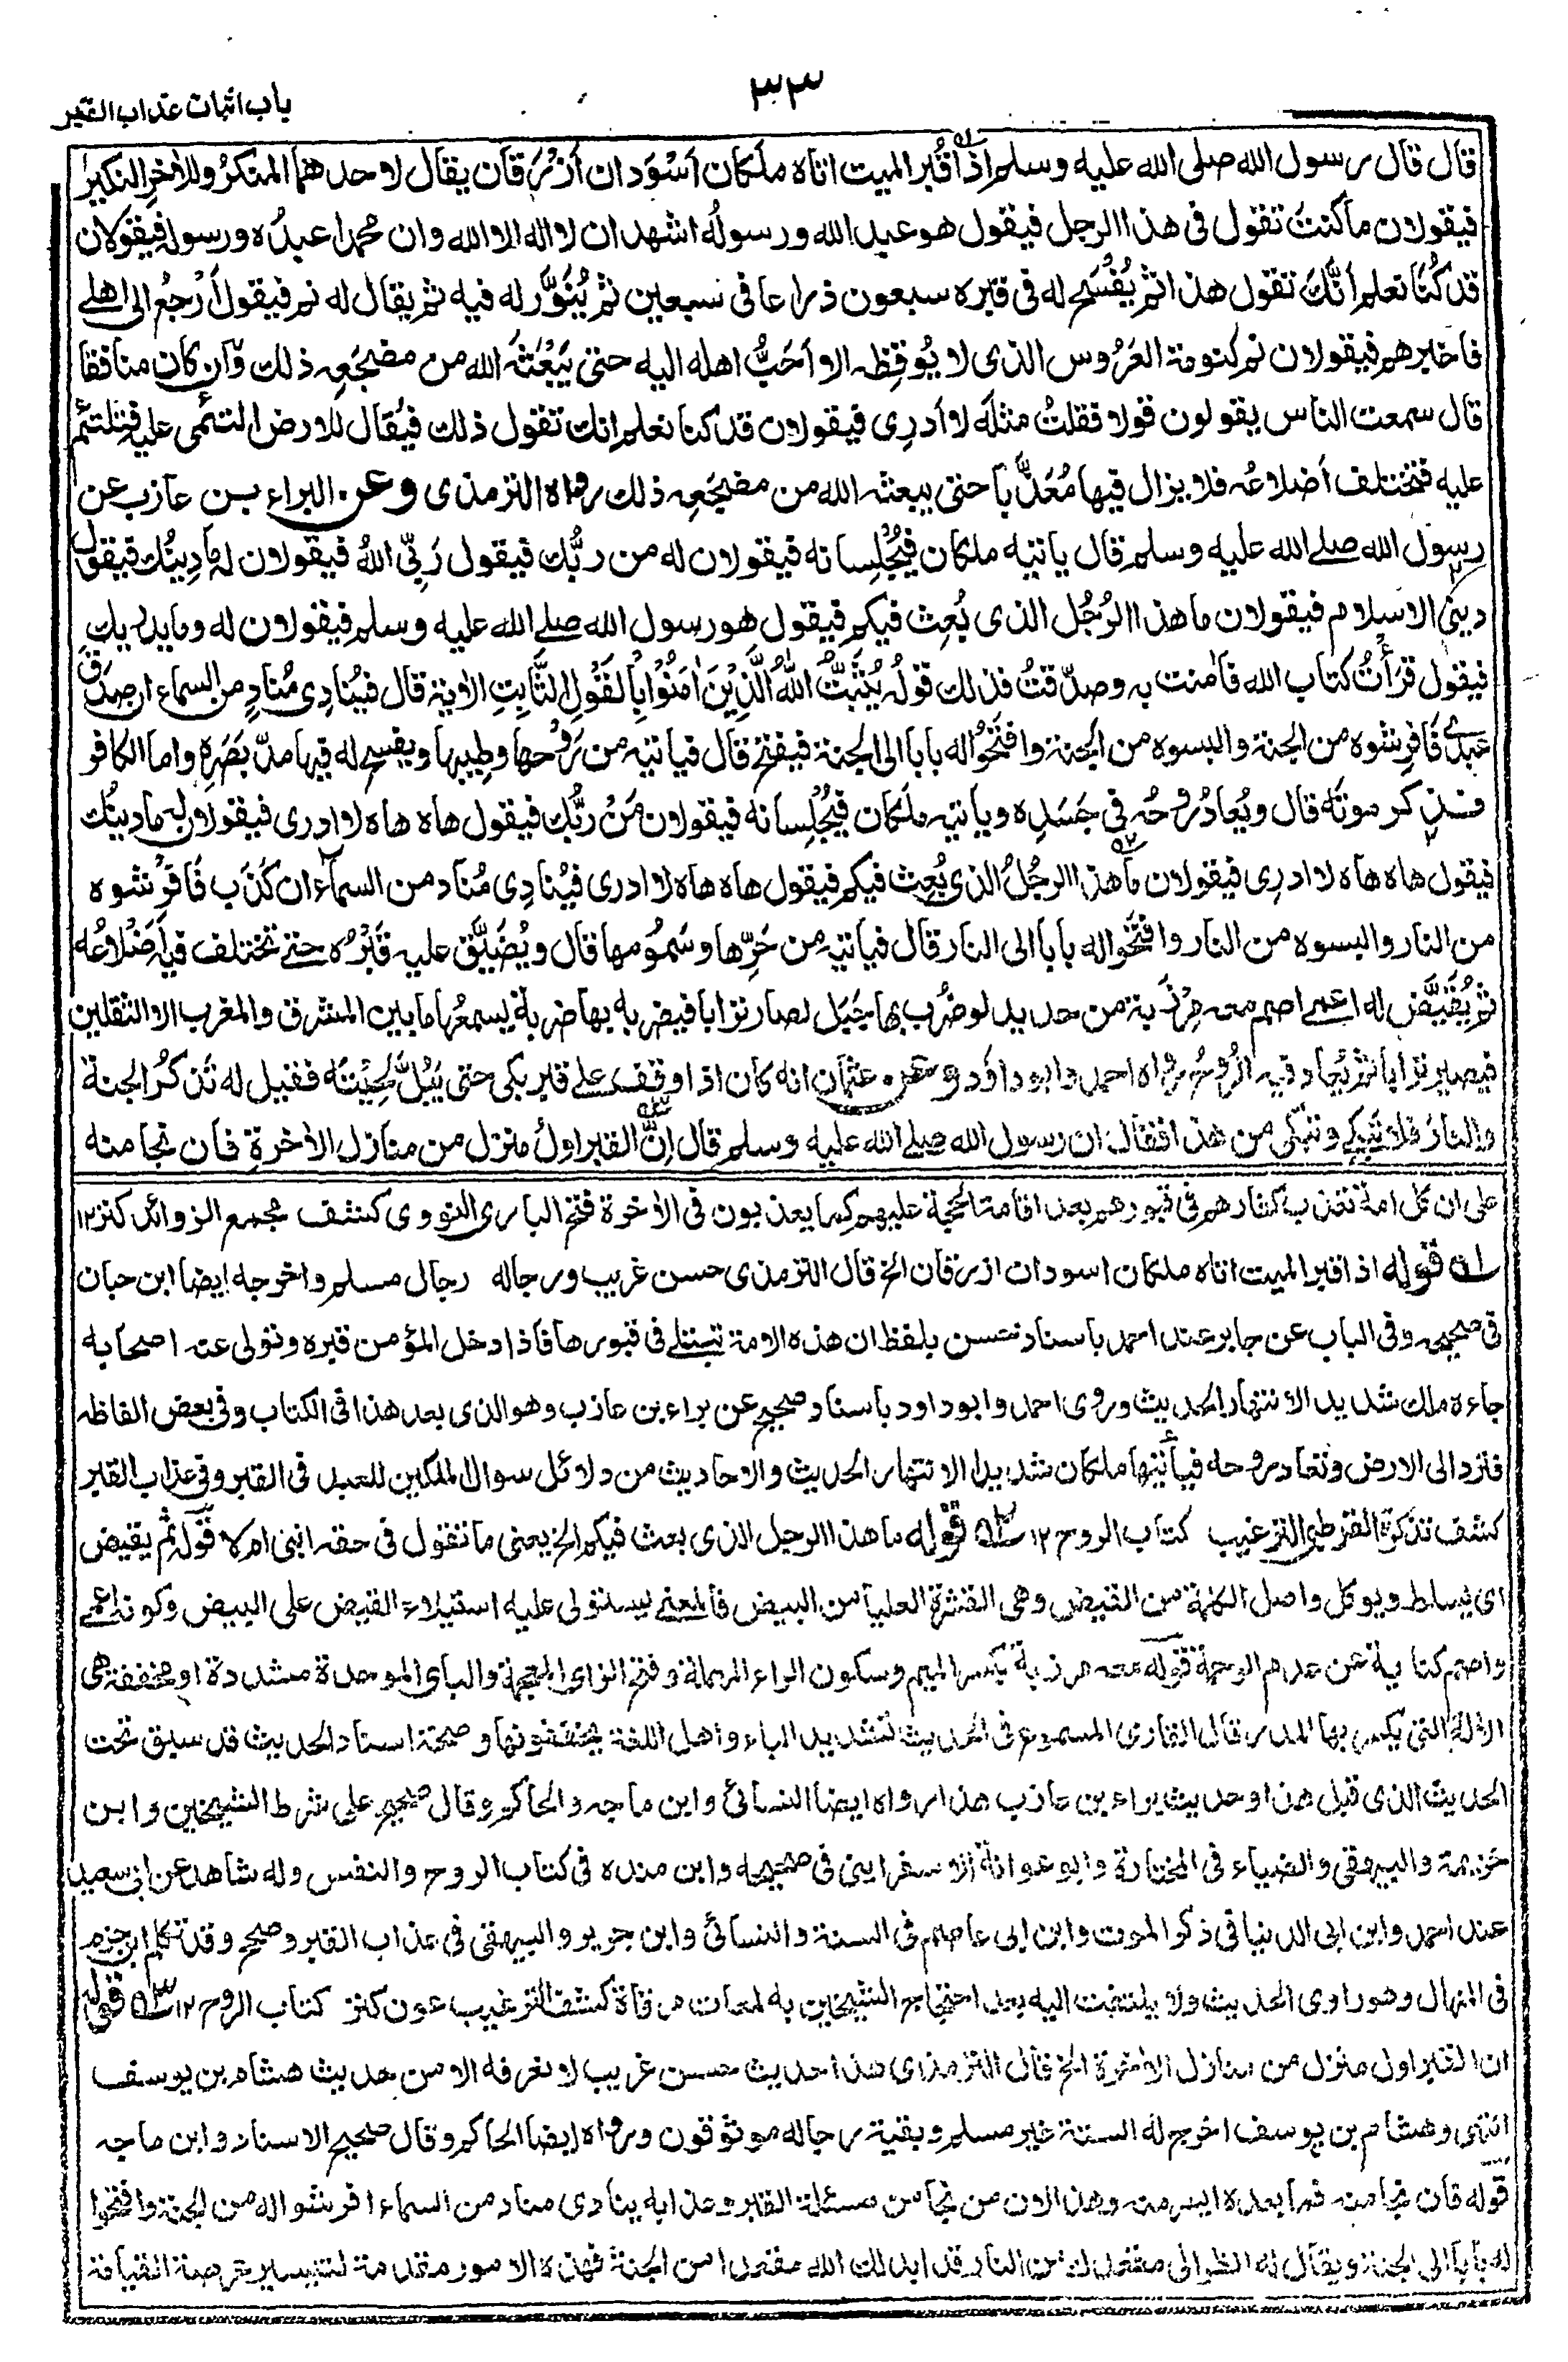 باب اثبات عذاب القبر
٣٣
قال قال رسول الله صلى الله عليه وسلم اذا اُقبر الميت اتاه ملكان اَسْوَدان اَزْرَقان يقال لاحدهما المنكرُ وللأخرِ النكيرُ
فيقولان ما كنتَ تقول فى هذا الرجل فيقول هو عبد الله ورسولُه اشهد ان لا اله الا الله وان محمدا عبدُه ورسوله فيقولان
قد كُنا نعلم اَنَّكَ تقول هذا ثم يُفْسَح له فى قبره سبعون ذراعا فى سبعين ثم يُنَوَّر له فيه ثم يقال له نم فيقول اَرْجِعُ الى اهلے
فاخبرهم فيقولان نم كنومة العَرُوس الذى لا يُوقِظه الا اَحَبُّ اهله اليه حتى يَبْعَثَه الله من مضجَعِه ذلك وان كان منافقا
قال سمعت الناس يقولون قولا فقلتُ مثلَه لا اَدرِى فيقولان قد كنا نعلم انك تقول ذلك فيُقال للارض التئمى عليه فتلتئم
عليه فتختلف اَضلاعُه فلا يزال فيها مُعَذَّبا حتى يبعثه الله من مضجَعِه ذلك رواه الترمذى وعن البراء بن عازب عن
رسول الله صلے الله عليه وسلم قال ياتيه ملكان فيُجْلِسانه فيقولان له من ربُّك فيقول رَبِّىَ اللهُ فيقولان له ما دِينُك فيقول
دينىَ الاسلام فيقولان ما هذا الرجُل الذى بُعِث فيكم فيقول هو رسول الله صلے الله عليه وسلم فيقولان له وما يدريك
فيقول قرَأتُ كتاب الله فأمنت به وصدّقتُ فذلك قولُه يُثَبِّتُ اللهُ الَّذِيْنَ اٰمَنُوْا بِالْقَوْلِ الثَّابِتِ الاٰية قال فيُنادِى مُنادٍ من السماء ان صدق
عبدے فَافرِشوه من الجنة والبسوه من الجنة وافتحوا له بابا الى الجنة فيفتح قال فياتيه من رَوْحها وطِيبِها ويفسح له فيها مدّ بصَرِه واما الكافر
فذكر موتَه قال ويُعادُ رُوحُه فى جَسَدِه وياتيه ملكان فيُجْلِسانه فيقولان مَنْ ربُّك فيقول هاه هاه لا ادرى فيقولان له ما دينُك
فيقول هاه هاه لا ادرِى فيقولان ما هذا الرجُلُ الذى بُعِث فيكم فيقول هاه هاه لا ادرى فيُنادِى مُناد من السماء ان كَذَب فَافْرِشوه
من النار والبسوه من النار وافتَحُوا له باباً الى النار قال فياتيه من حَرِّها وسَمُومها قال ويُضَيَّق عليه قَبْرُه حتے تختلف فيه اَضْلاعُه
ثم يُقَيَّض له اعمے اصم معه مِرْزَبة من حديد لو ضُرِب بها جَبَل لصار ترابا فيضربه بها ضربة يسمعُها ما بين المشرق والمغرب الا الثقلين
فيصير ترابا ثم يُعاد فيه الرُّوحُ رواه احمد وابو داؤد وعن عثمان انه كان اذا وقف علے قبر بكى حتى يَبُلَّ لِحْيَتَه فقيل له تذكُرُ الجنة
والنارَ فلا تَبكِے وتبكى من هذا فقال ان رسول الله صلے الله عليه وسلم قال اِنَّ القبر اولُ منزل من منازل الأخرةِ فان نجا منه
على ان كل امة تعذب كفارهم فى قبورهم بعد اقامة الحجة عليهم كما يعذبون فى الأخرة فتح البارى النووى كشف مجمع الزوائد كنز ١٢
١ قوله اذا اقبر الميت اتاه ملكان اسودان ازرقان الخ قال الترمذى حسن غريب ورجاله رجال مسلم واخرجه ايضا ابن حبان
فى صحيحه وفى الباب عن جابر عند احمد باسناد حسن بلفظ ان هذه الامة تبتلے فى قبورها فاذا دخل المؤمن قبره وتولى عنه اصحابه
جاءه ملك شديد الانتهار الحديث وروى احمد وابو داود باسناد صحيح عن براء بن عازب وهو الذى بعد هذا فى الكتاب وفى بعض الفاظه
فترد الى الارض وتعاد روحه فيأتيها ملكان شديدا الانتهار الحديث والاحاديث من دلائل سوال الملكين للعبد فى القبر وفى عذاب القبر
كشف تذكرة القرطبى الترغيب كتاب الروح ١٢ ٢ قوله ما هذا الرجل الذى بعث فيكم الخ يعنى ما تقول فى حقه انبى ام لا قوله ثم يقيض
اى يسلط ويوكل واصل الكلمة من القيض وهى القشرة العليا من البيض فالمعنے يستولى عليه استيلاء القيض على البيض وكونه اعمے
واصم كناية عن عدم الرحمة قوله معه مرزبة بكسر الميم وسكون الراء المهملة وفتح الزاى المعجمة والباى الموحدة مشددة او مخففة هى
الألة التى يكسر بها المدر قال القارى المسموع فى الحديث تشديد الباء واهل اللغة يخففونها وصحة اسناد الحديث قد سبق تحت
الحديث الذى قبل هذا وحديث براء بن عازب هذا رواه ايضا النسائى وابن ماجه والحاكم وقال صحيح على شرط الشيخين وابن
خزيمة والبيهقى والضياء فى المختارة وابو عوانة الاسفراينى فى صحيحه وابن منده فى كتاب الروح والنفس وله شاهد عن ابى سعيد
عند احمد وابن ابى الدنيا فى ذكر الموت وابن ابى عاصم فى السنة والنسائى وابن جرير والبيهقى فى عذاب القبر وصحح وقد تكلم ابن حزم
فى المنهال وهو راوى الحديث ولا يلتفت اليه بعد احتجاج الشيخين به لمعات مرقاة كشف الترغيب عون كنز كتاب الروح ١٢ ٣ قوله
ان القبر اول منزل من منازل الأخرة الخ قال الترمذى هذا حديث حسن غريب لا نعرفه الا من حديث هشام بن يوسف
انتهى وهشام بن يوسف اخرج له الستة غير مسلم وبقية رجاله موثوقون ورواه ايضا الحاكم وقال صحيح الاسناد وابن ماجه
قوله فان نجا منه فما بعده ايسر منه وهذا لان من نجا من مسئلة القبر وعذابه ينادى مناد من السماء افرشوا له من الجنة وافتحوا
له بابا الى الجنة ويقال له انظر الى مقعدك من النار قد ابدلك الله مقعدا من الجنة فهذه الامور مقدمة لتيسير عرصة القيامة